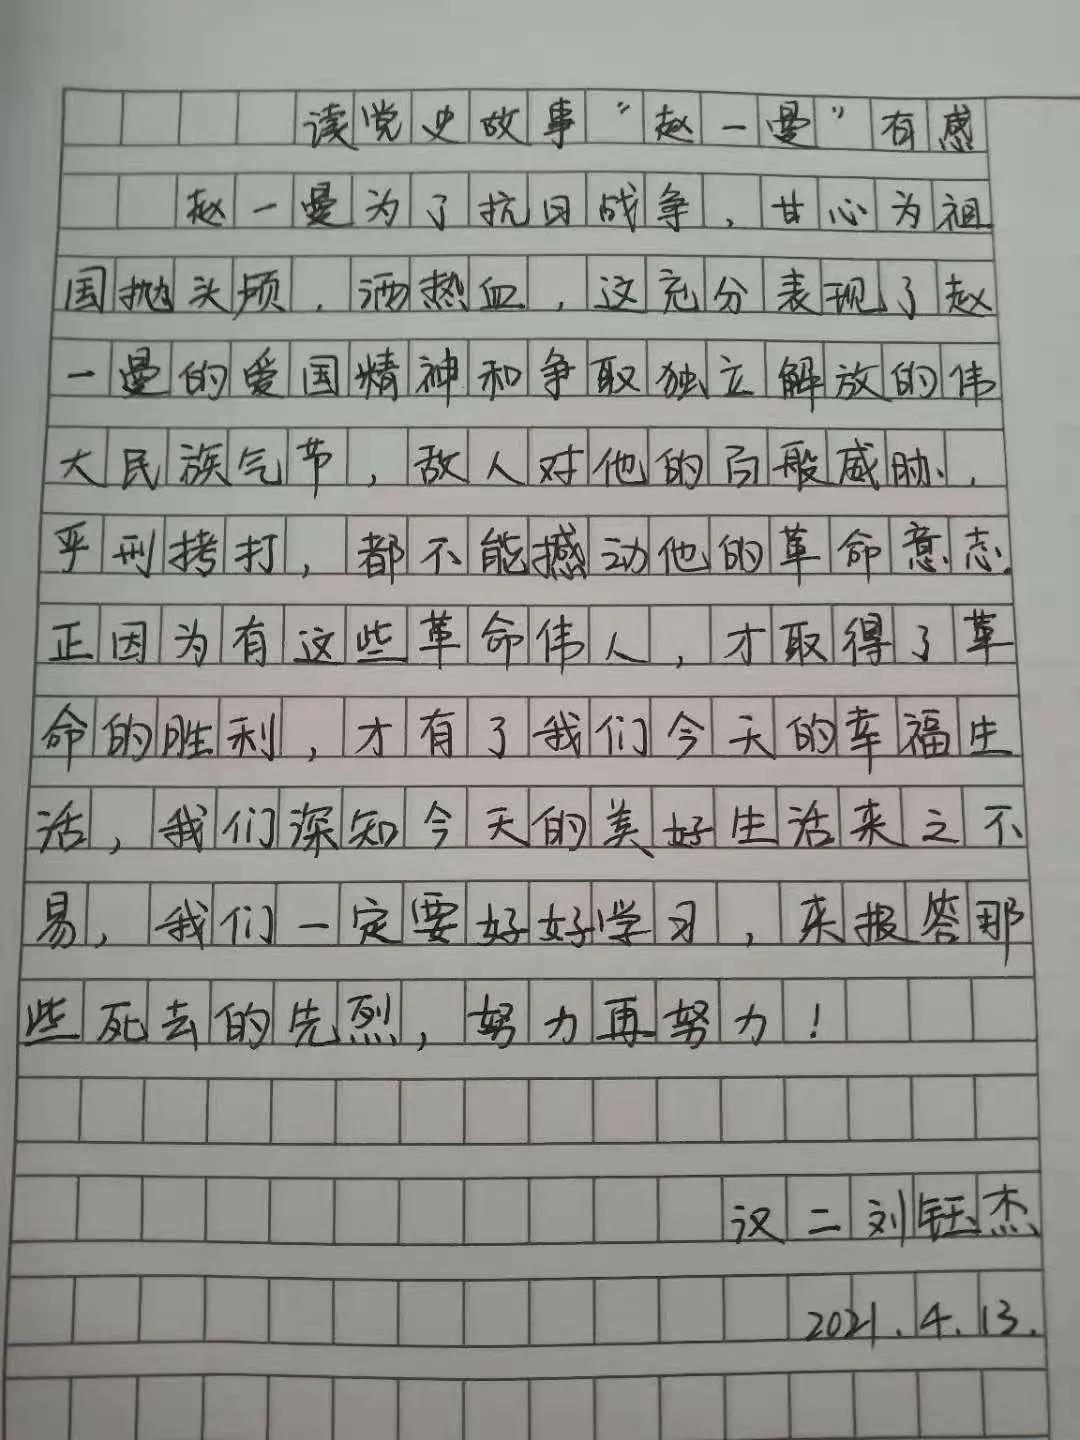 读党史故事“赵一曼”有感
赵一曼为了抗日战争，甘心为祖
国抛头颅，洒热血，这充分表现了赵
一曼的爱国精神和争取独立解放的伟
大民族气节，敌人对他的百般威胁，
严刑拷打，都不能撼动他的革命意志.
正因为有这些革命伟人，才取得了革
命的胜利，才有了我们今天的幸福生
活，我们深知今天的美好生活来之不
易，我们一定要好好学习，来报答那
些死去的先烈，努力再努力！
汉二刘钰杰
2021.4.13.